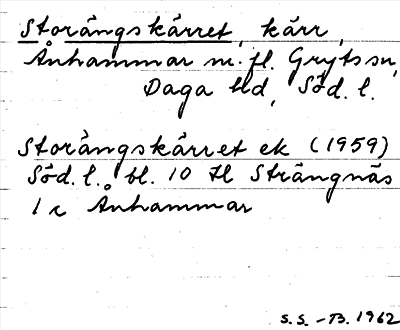 Storängskärret, kärr,
Ånhammar m.fl. Gryts sn,
Daga hd, Söd. l.
Storängskärret ek (1959)
Söd. l. bl. 10 Il Strängnäs
1 c Ånhammar
S.S. -B. 1962